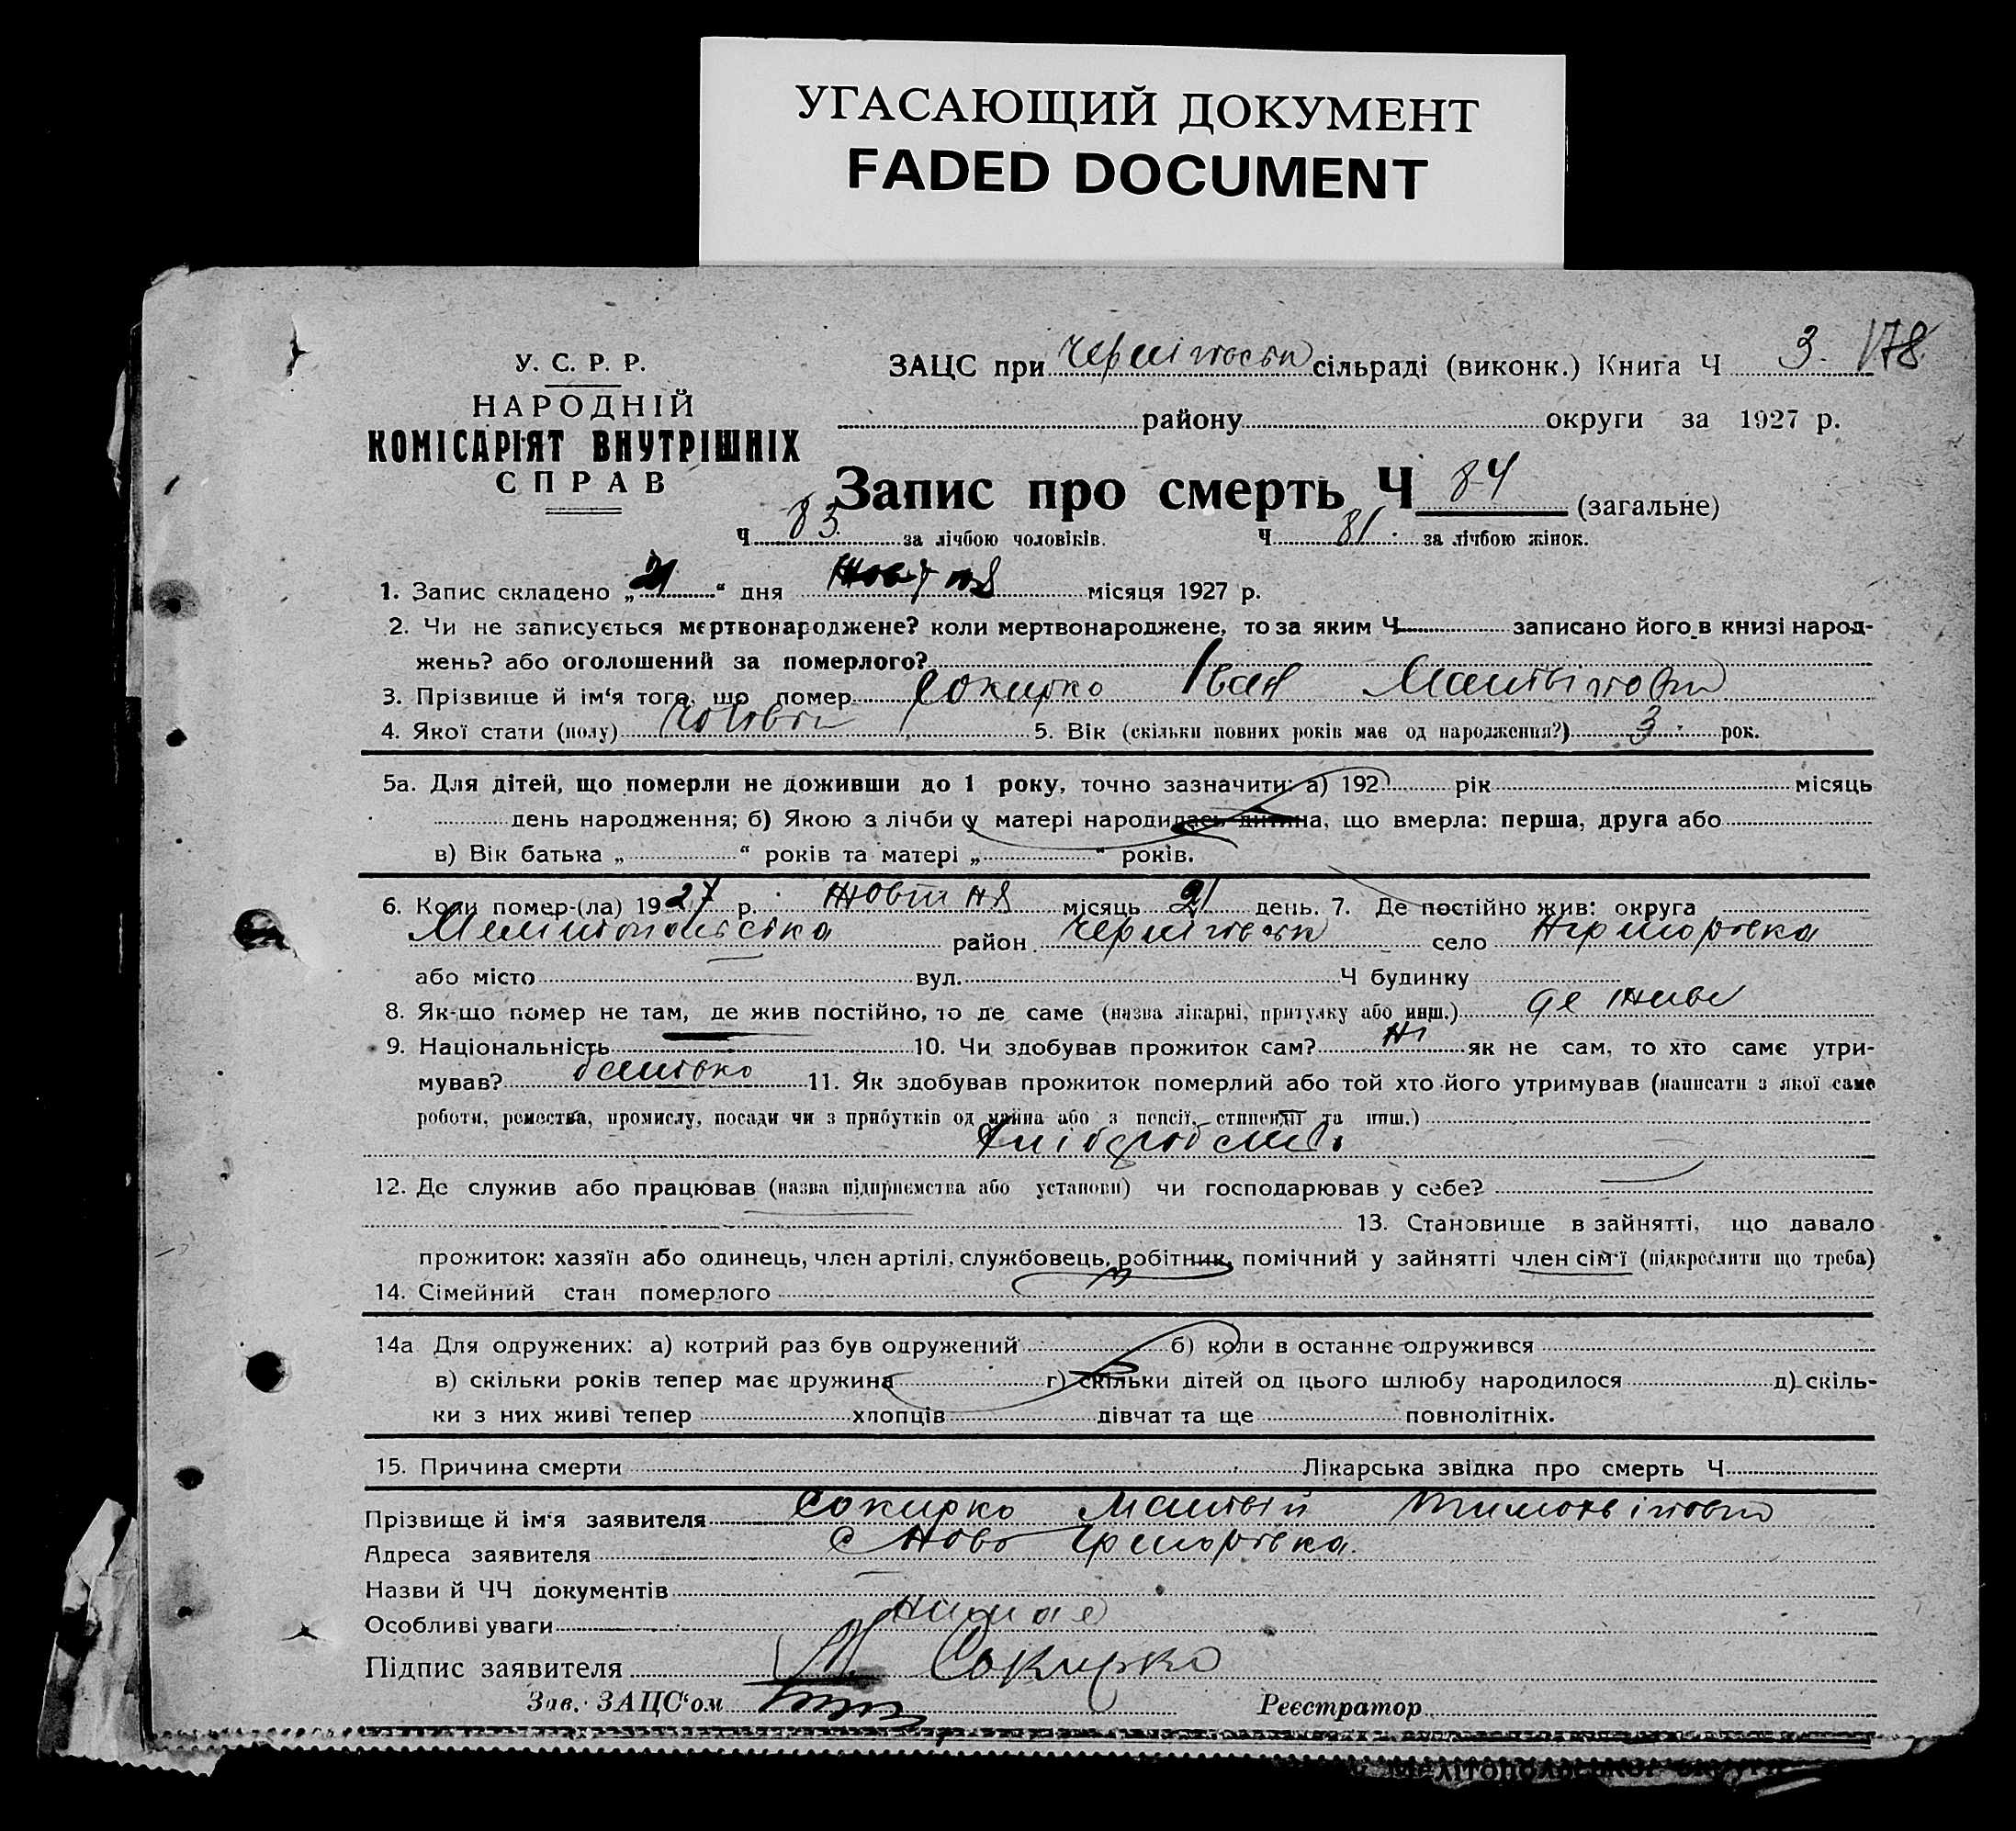 УГАСАЮЩИЙ ДОКУМЕНТ
FADED DOCUMENT
178
У. С. Р. Р.
НАРОДНІЙ
КОМІСАРІЯТ ВНУТРІШНІХ
СПРАВ
ЗАЦС при сільраді (виконк.) Книга Ч 3.
району округи за 1927 р.
Запис про смерть Ч 84 (загальне)
Ч 83. за лічбою чоловіків. Ч 81. за лічбою жінок.
1. Запис складено „21“ дня Жовтня місяця 1927 р.
2. Чи не записується мертвонароджене? коли мертвонароджене, то за яким Ч записано його в книзі народ-
жень? або оголошений за померлого?
3. Прізвище й ім'я того, що помер Сокирко Іван Матвійович
4. Якої стати (полу) 5. Вік (скільки повних років має од народження?) 3 рок.
5а. Для дітей, що померли не доживши до 1 року, точно зазначити: а) 192 рік місяць
день народження; б) Якою з лічби у матері народилась дитина, що вмерла: перша, друга або
в) Вік батька „ “ років та матері „ “ років.
6. Коли помер-(ла) 1927 р. Жовтня місяць 21 день. 7. Де постійно жив: округа
Мелитопольська район село
або місто вул. Ч будинку
8. Як-що помер не там, де жив постійно, то де саме (назва лікарні, притулку або инш.) де живе
9. Національність 10. Чи здобував прожиток сам? Ні як не сам, то хто саме утри-
мував? батько 11. Як здобував прожиток померлий або той хто його утримував (написати з якої саме
роботи, ремества, промислу, посади чи з прибутків од майна або з пенсії, стипендії та инш.)
Хліборобств.
12. Де служив або працював (назва підприємства або установи) чи господарював у себе?
13. Становище в зайнятті, що давало
прожиток: хазяїн або одинець, член артілі, службовець, робітник, помічний у зайнятті член сім'ї (підкреслити що треба)
14. Сімейний стан померлого
14а Для одружених: а) котрий раз був одружений б) коли в останнє одружився
в) скільки років тепер має дружина г) скільки дітей од цього шлюбу народилося д) скіль-
ки з них живі тепер хлопців дівчат та ще повнолітніх.
15. Причина смерти Лікарська звідка про смерть Ч
Прізвище й ім'я заявителя Сокирко Матвій
Адреса заявителя с Ново
Назви й ЧЧ документів
Особливі уваги немає
Підпис заявителя М. Сокирко
Зав. ЗАЦС'ом Реєстратор
Мелітопольської округи